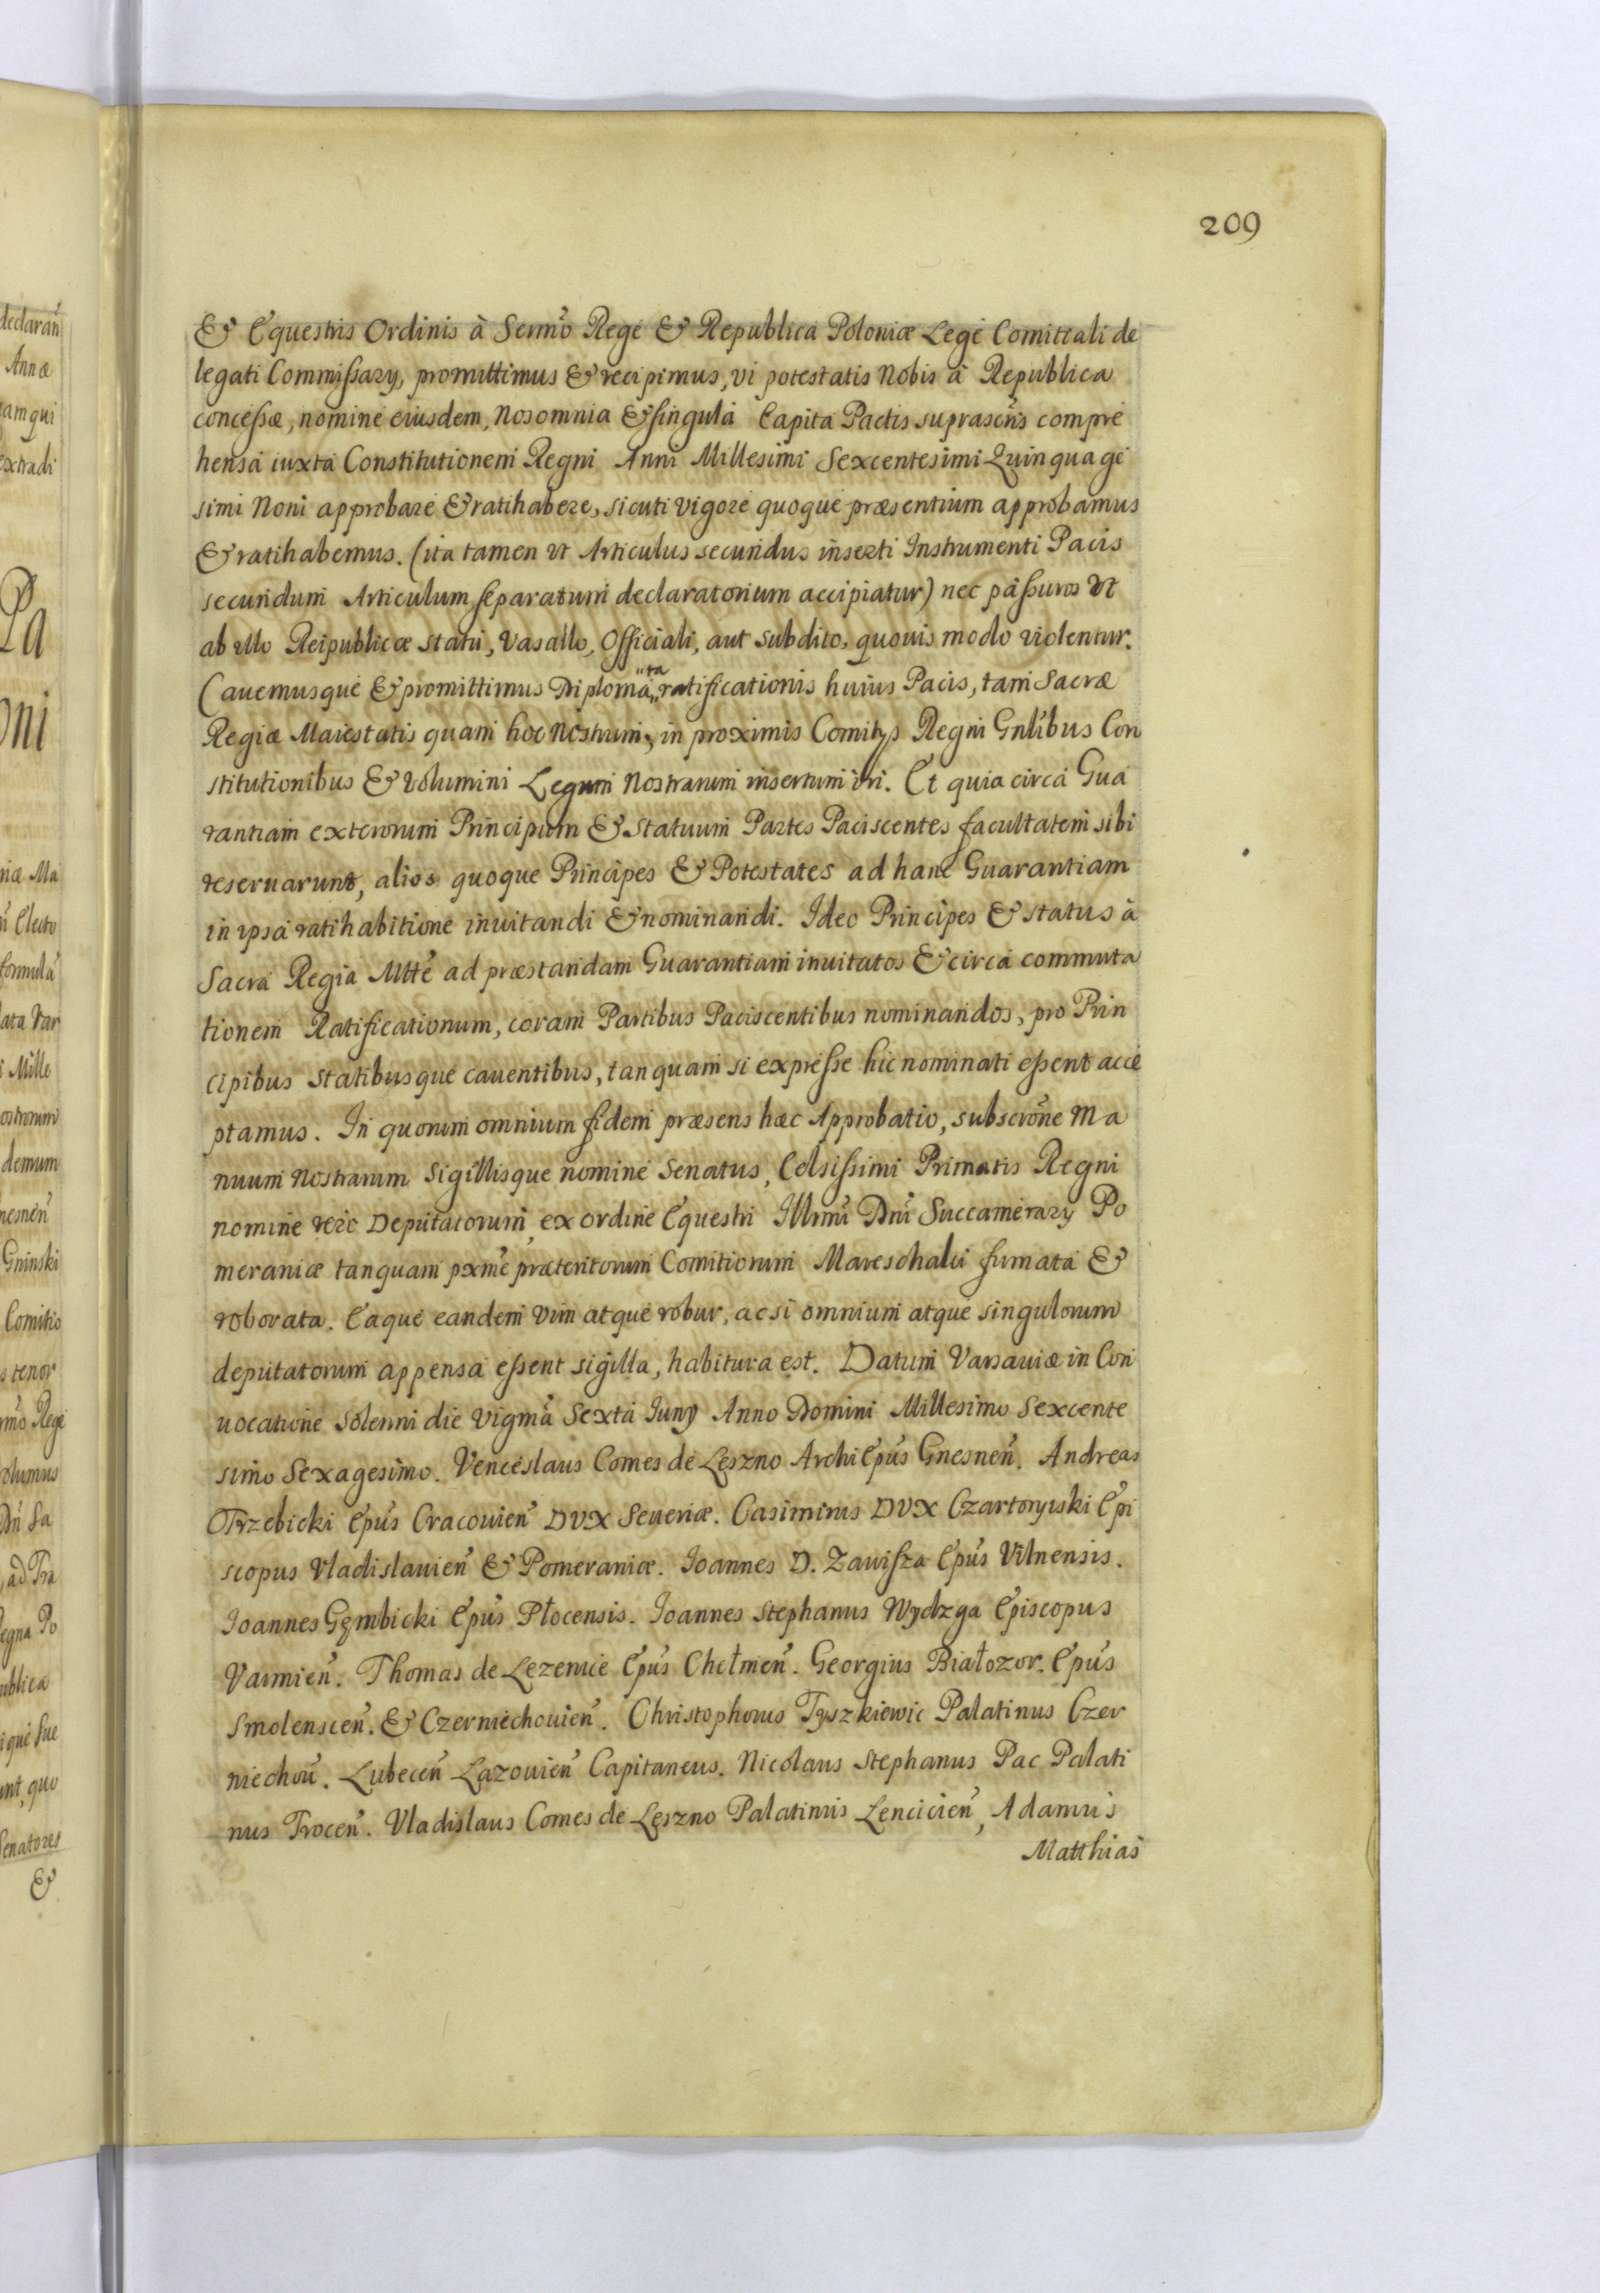 209
& Equestris Ordinis à Sermõ Rege & Republica Poloniæ Lege Comitiali de
legati Commissary, promittimus & recipimus, vi potestatis Nobis à Republica
concessæ, nomine eiusdem, Nos omnia & singula Capita Pactis suprascris compre
hensa iuxta Constitutionem Regni Anni Millesimi Sexcentesimi Quinquage
simi Noni approbare & ratihabere, sicuti vigore quoque præsentium approbamus
& ratihabemus. (ita tamen vt Articulus secundus inserti Instrumenti Pacis
secundum Articulum separatum declaratorium accipiatur) nec passuros vt
ab vllo Reipublicæ statu, Vasallo, Officiali, aut subdito, quouis modo violentur.
Cauemusque & promittimus Diplomata ratificationis huius Pacis, tam Sacræ
Regiæ Maiestatis quam hoc Nostrum, in proximis Comitys Regni Gnlibus Con
stitutionibus & Volumini Legum Nostrarum insertum iri. Et quia circa Gua
rantiam exterorum Principum & Statuum Partes Paciscentes facultatem sibi
reseruarunt, alios quoque Principes & Potestates ad hanc Guarantiam
in ipsa ratihabitione inuitandi & nominandi. Ideo Principes & status à
Sacra Regia Mtte ad præstandam Guarantiam inuitatos & circa commuta
tionem Ratificationum, coram Partibus Paciscentibus nominandos, pro Prin
cipibus Statibusque cauentibus, tanquam si expresse hic nominati essent acce
ptamus. In quorum omnium fidem præsens hæc Approbatio, subscrõne Ma
nuum Nostrarum Sigillisque nomine Senatus, Celsissimi Primatis Regni
nomine vero Deputatorum, ex ordine Equestri Illrmi Dni Succamerary Po
meraniæ tanquam pxme præteritorum Comitiorum Mareschalci firmata &
roborata. Eaque eandem vim atque robur, ac si omnium atque singulorum
deputatorum appensa essent sigilla, habitura est. Datum Varsauiæ in Con
uocatione Solenni die Vigmã Sexta Iuny Anno Domini Millesimo Sexcente
simo Sexagesimo. Venceslaus Comes de Leszno ArchiEpus Gnesneñ. Andreas
Trzebicki Epus Cracouieñ DVX Seueriæ. Casimirus DVX Czartoryiski Epi
scopus Vladislauieñ & Pomeraniæ. Ioannes D. Zawisza Epus Vilnensis.
Ioannes Gębicki Epus Płocensis. Ioannes Stephanus Wydzga Episcopus
Varmieñ. Thomas de Lezenice Epus Chełmeñ. Georgius Białozor. Epus
Smolensceñ. & Czerniechouieñ. Christophorus Tyszkiewic Palatinus Czer
niechoũ. Lubeceñ Lazouieñ Capitaneus. Nicolaus Stephanus Pac Palati
nus Troceñ. Vladislaus Comes de Leszno Palatinus Lencicieñ, Adamus
Matthias